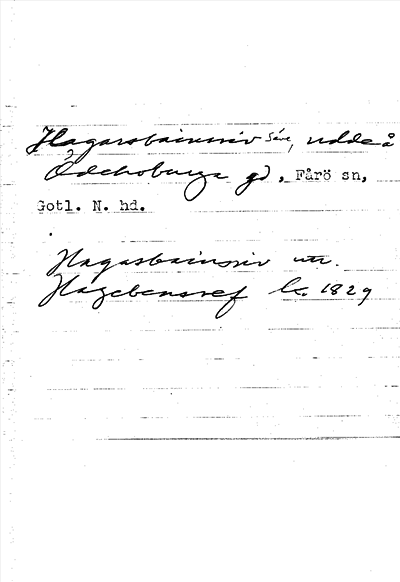 Hagarsbainsriv Säve, udde å
Ödehoburga gd, Fårö sn,
Gotl. N. hd.
Hagasbainsriv utt.
Hagebensref lk. 1829